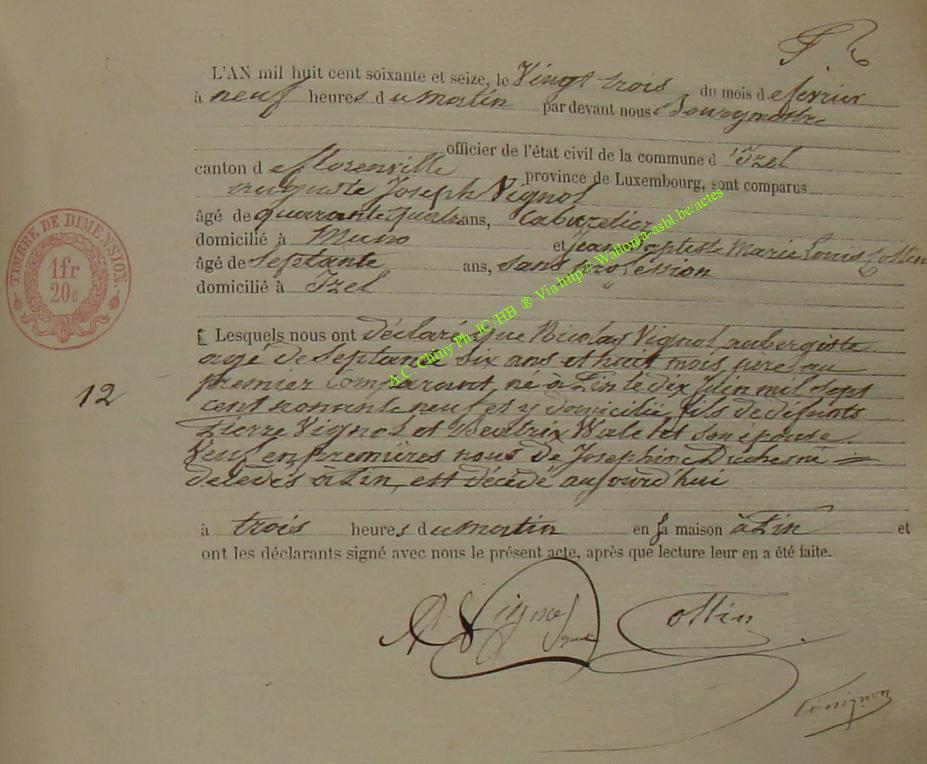 L'AN mil huit cent soixante et seize, le Vingt trois du mois de fevrier
à neuf heures du matin par devant nous Bourgmestre
officier de l'état civil de la commune d'Izel
canton de florenville province de Luxembourg, sont comparus
Auguste Joseph Vignol
âgé de quarante quatre ans, Cabaretier
domicilié à Muno et Jean Baptiste Marie Louis Collin
âgé de Septante ans, sans profession
domicilié à Izel
Lesquels nous ont déclaré que Nicolas Vignol, aubergiste
agé de Septante six ans et huit mois, père au
premier Comparant, né à Pin le dix Juin mil sept
12
cent nonante neuf et y domicilié, fils de defunts
Pierre Vignol et Beatrix Walet son épouse
Veuf en premières noces de Josephine Duchesne
décédés à Pin, est décédé aujourd'hui
à trois heures du matin en sa maison à Pin et
ont les déclarants signé avec nous le présent acte, après que lecture leur en a été faite.
A Vignol Collin
TIMBRE DE DIMENSION.
1 fr
20 c
A.C. Chiny Ph. JC /HB ® Via http:// Wallonia-asbl.be/actes